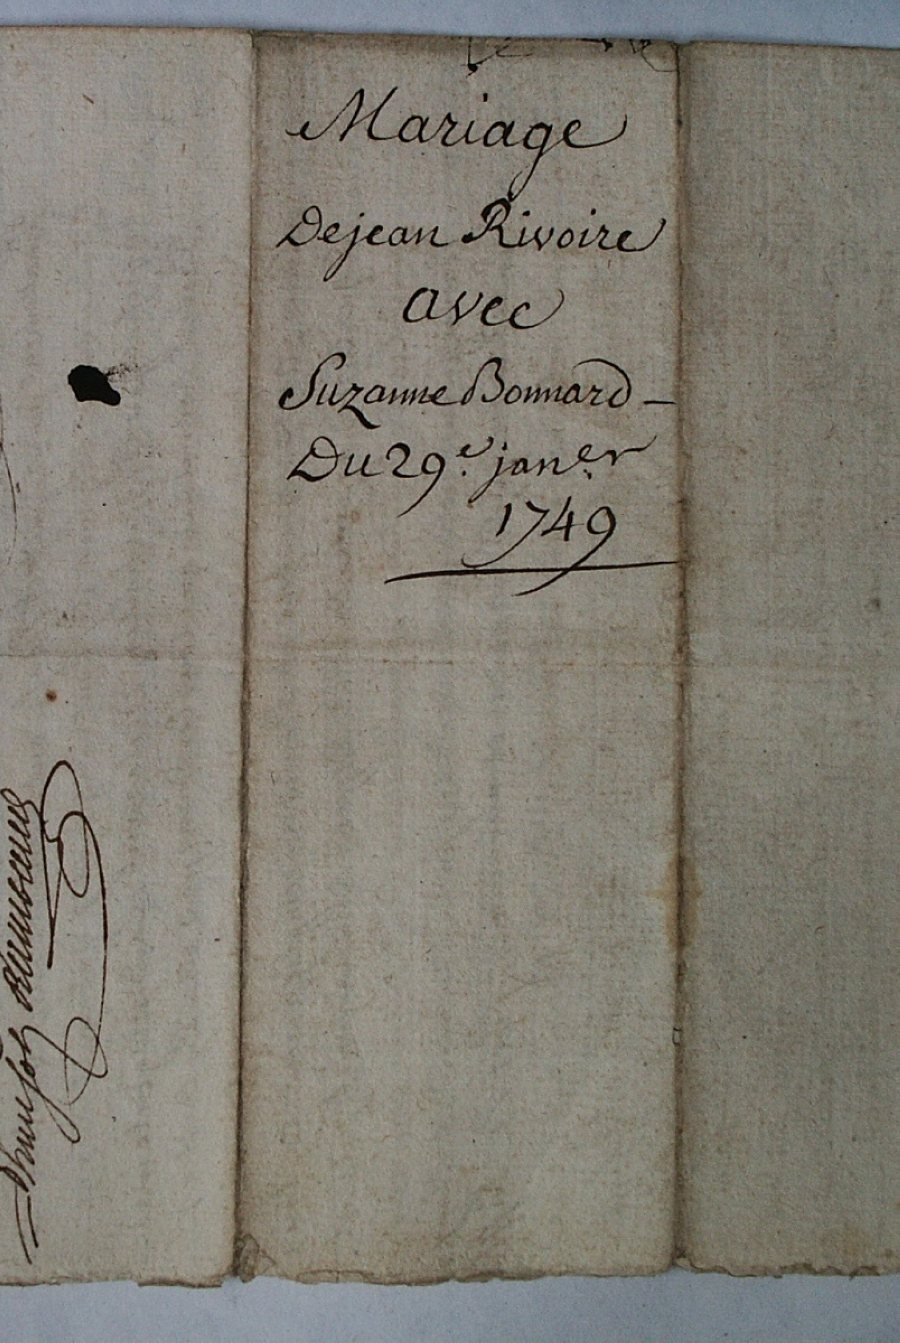 Mariage
Dejean Rivoire
avec
Suzanne Bonnard -
Du 29.e jan.er
1749